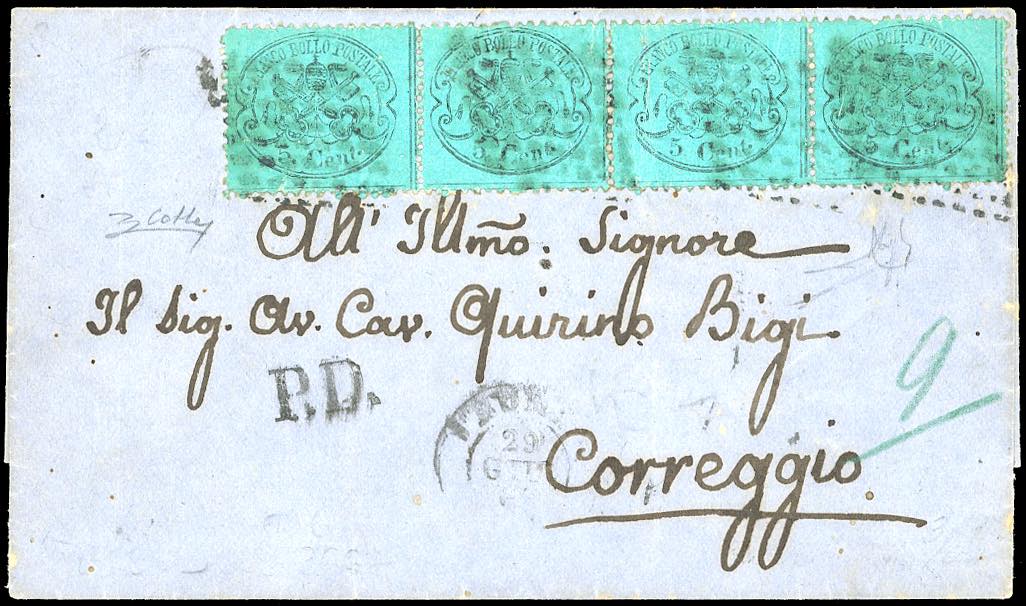 FRANCO BOLLO POSTALE FRANCO BOLLO POSTALE FRANCO BOLLO POSTALE FRANCO BOLLO POSTALE
5 Cent. 5 Cent. 5 Cent. 5 Cent.
All' Illmõ: Signore
Il Sig. Av. Cav. Quirino Bigi.
9
P.D.
29
Correggio